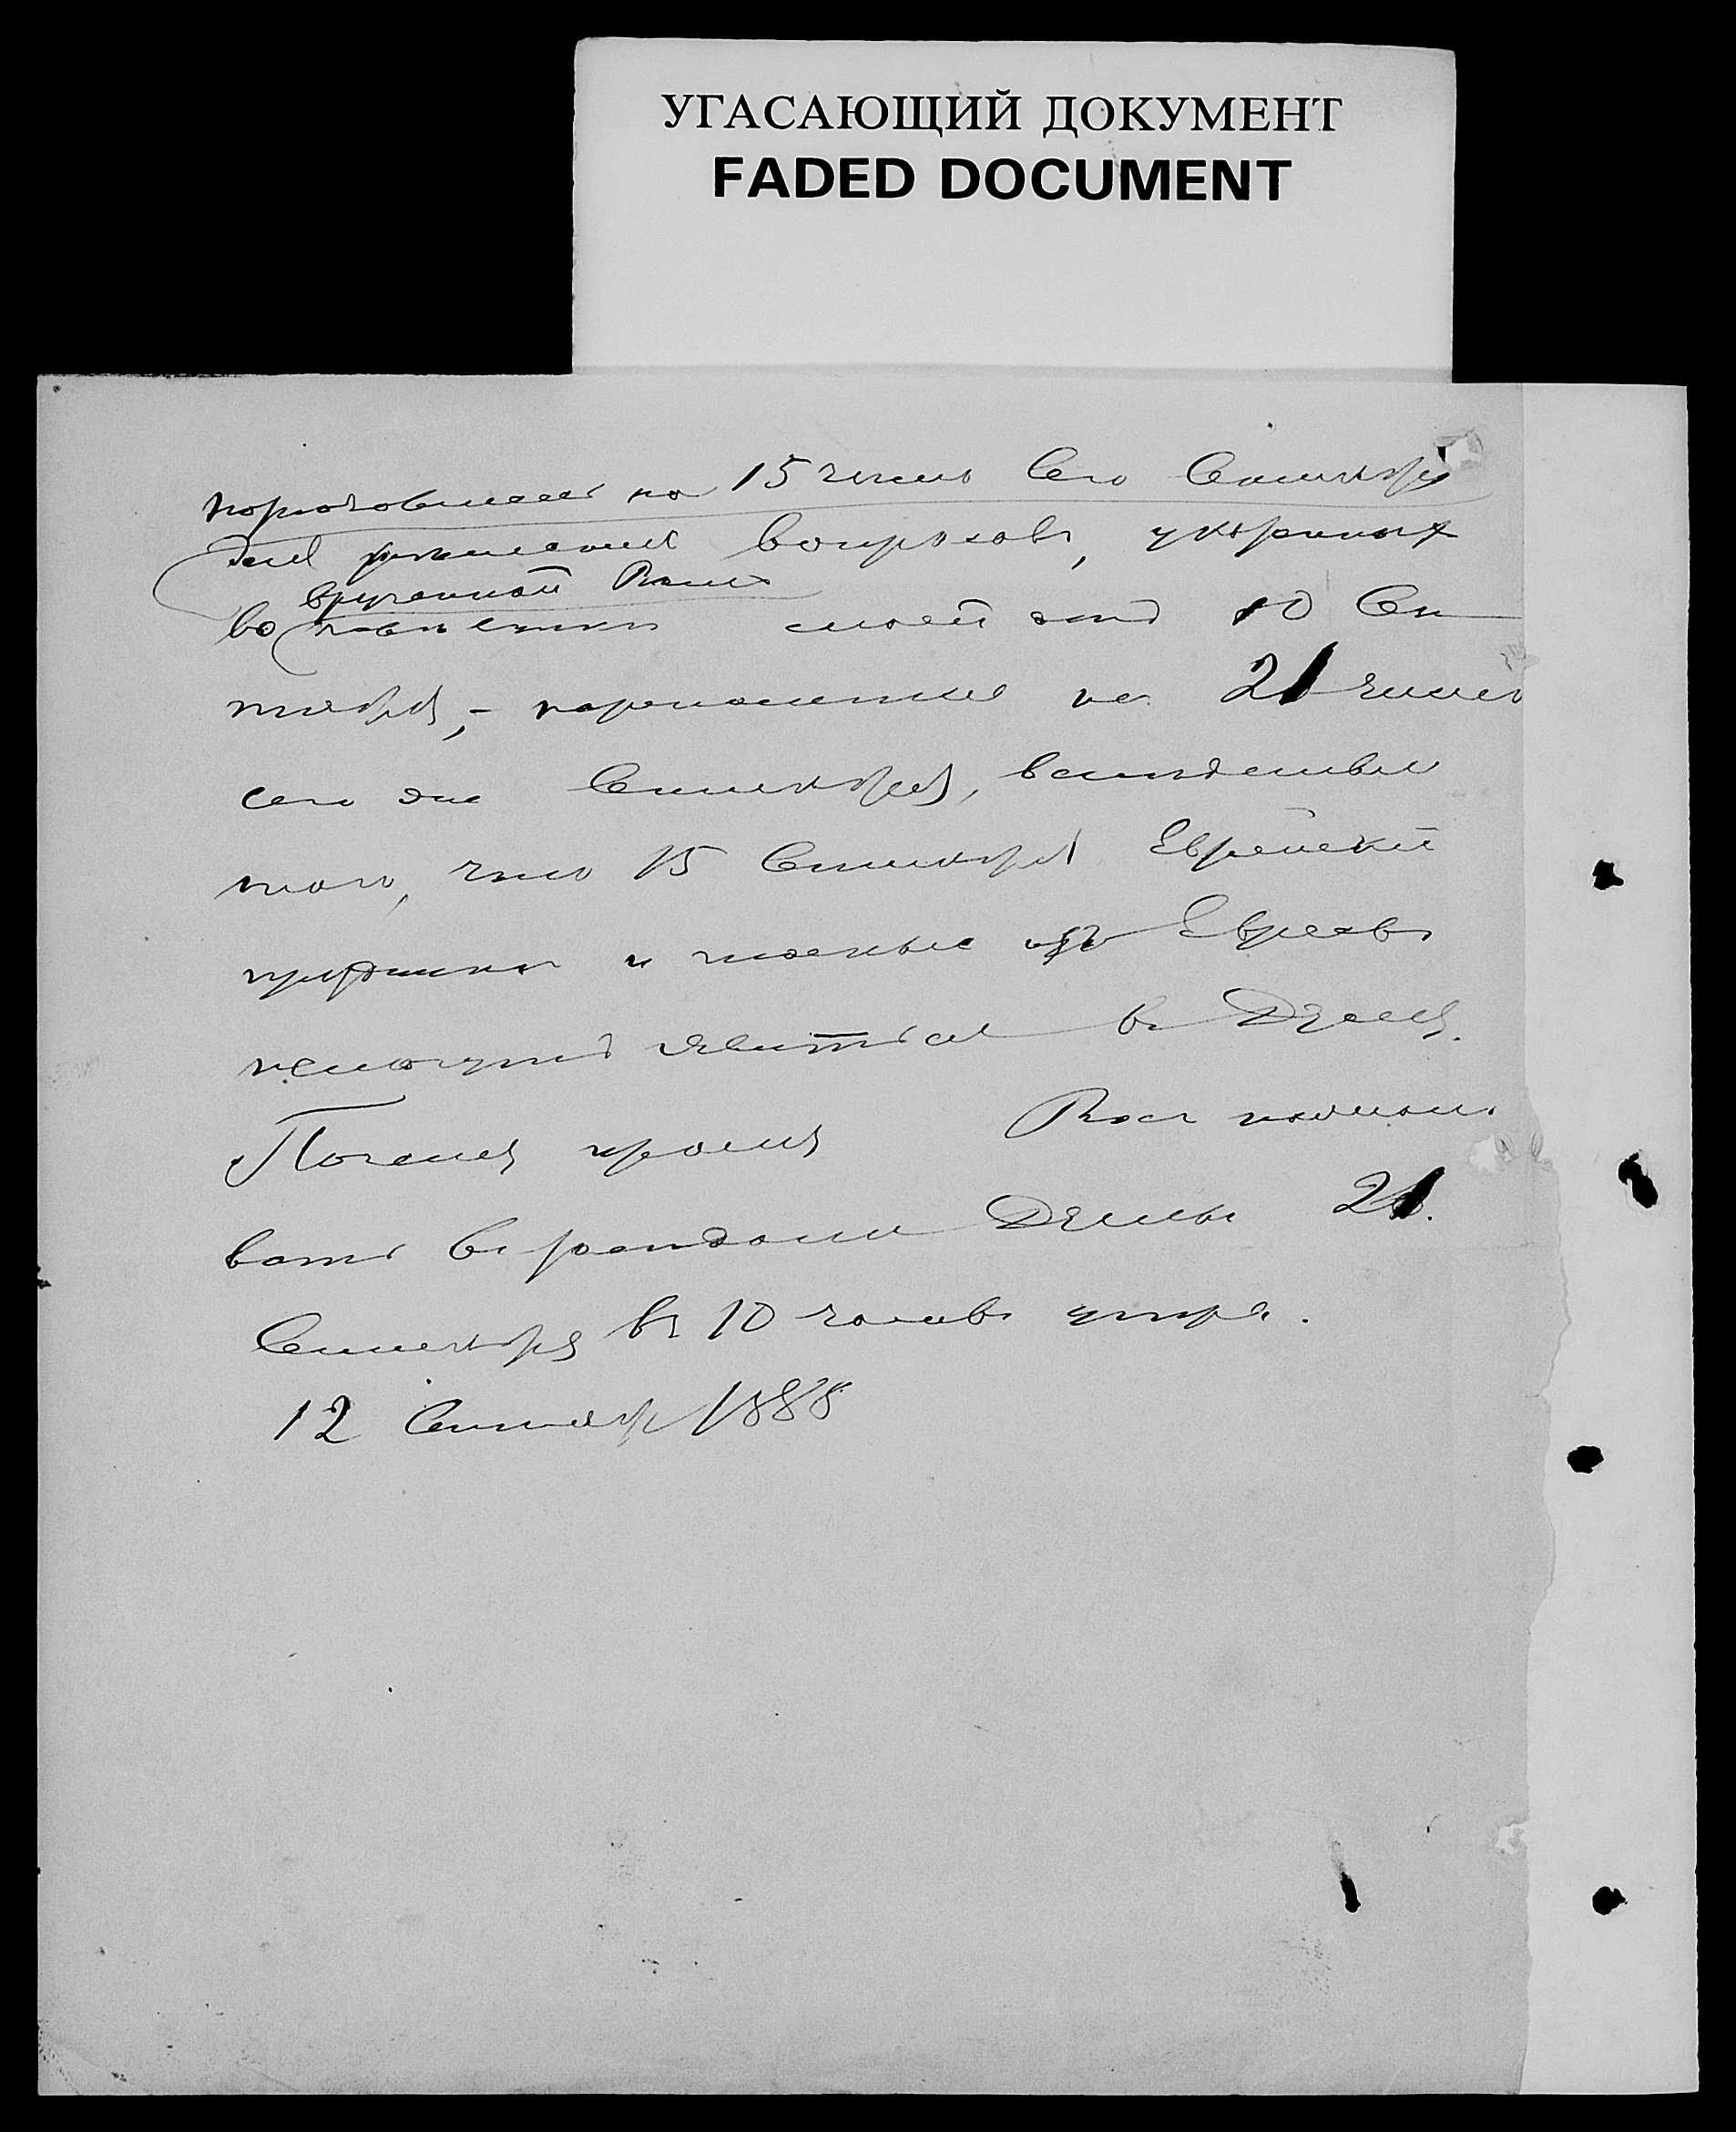 УГАСАЮЩИЙ ДОКУМЕНТ
FADED DOCUMENT
на 15 число Сего Сентября
для решения вопросовъ, указанныхъ
врученной Вамъ
во повѣстки моей отъ 10 Сен
тября, - перенесено на 21 число
сего же Сентября, вслѣдствіе
того, что 15 Сентября Еврейскій
праздникъ и гласные изъ Евреевъ
не могутъ явиться въ Думу.
Почему прошу Васъ пожало
вать въ засѣданіе Думы 21
Сентября въ 10 часовъ утра.
12 Сентября 1888